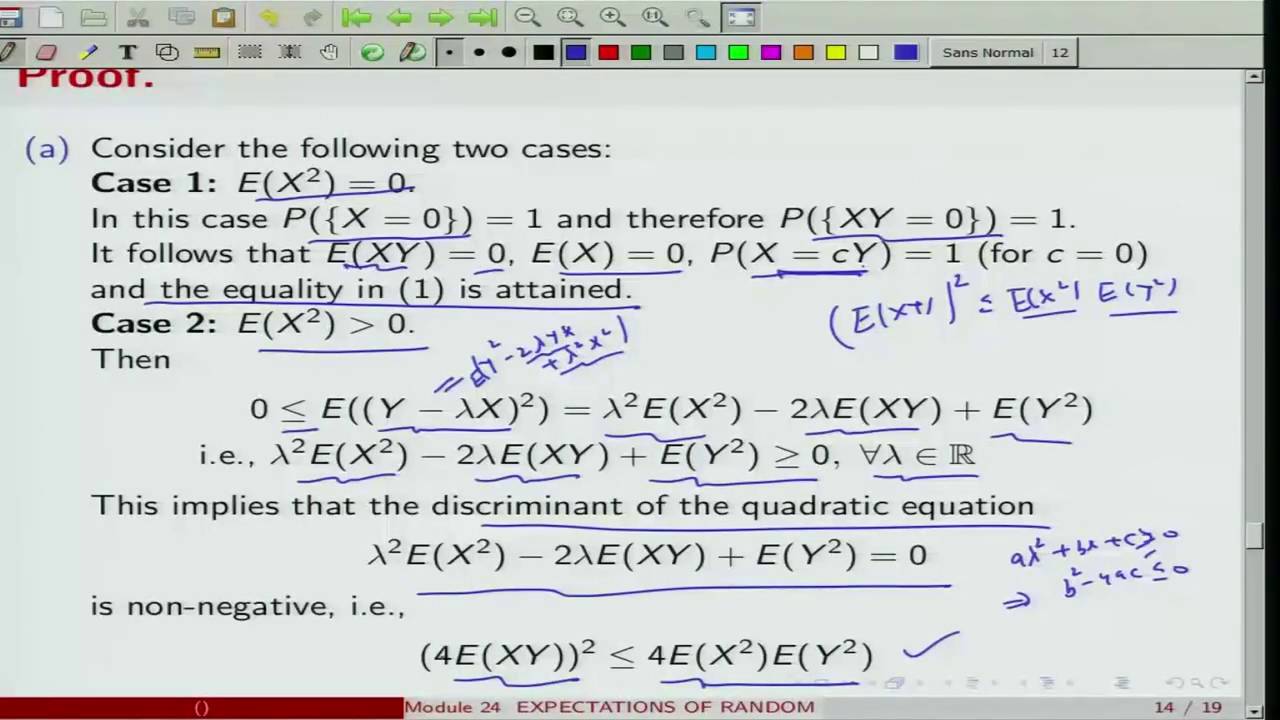 Sans Normal 12
Proof.
(a) Consider the following two cases:
Case 1: E(X²) = 0.
In this case P({X = 0}) = 1 and therefore P({XY = 0}) = 1.
It follows that E(XY) = 0, E(X) = 0, P(X = cY) = 1 (for c = 0)
and the equality in (1) is attained.
(E(XY))² ≤ E(X²) E(Y²)
Case 2: E(X²) > 0.
Then
= E(Y² - 2λYX
+ λ²X²)
0 ≤ E((Y − λX)²) = λ²E(X²) − 2λE(XY) + E(Y²)
i.e., λ²E(X²) − 2λE(XY) + E(Y²) ≥ 0, ∀λ ∈ ℝ
This implies that the discriminant of the quadratic equation
λ²E(X²) − 2λE(XY) + E(Y²) = 0
aλ² + bλ + c ≥ 0
⇒ b² - 4ac ≤ 0
is non-negative, i.e.,
(4E(XY))² ≤ 4E(X²)E(Y²) ✓
() Module 24 EXPECTATIONS OF RANDOM 14 / 19